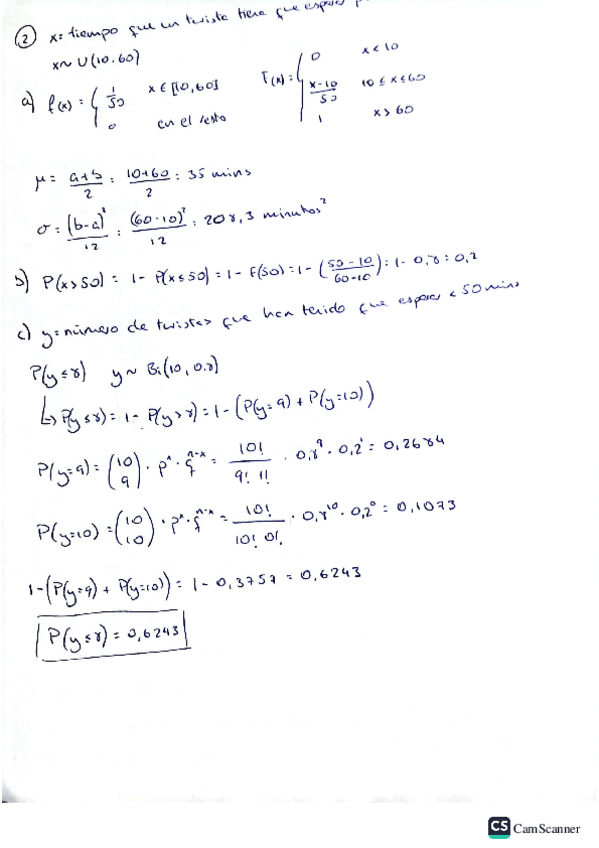 ② x = tiempo que un turista tiene que esperar
x ~ U(10.60)
a) f(x) = { 1/50 x ∈ [10,60]
0 en el resto
F(x) = { 0 x < 10
x-10/50 10 ≤ x ≤ 60
1 x > 60
μ = a+b/2 = 10+60/2 = 35 mins
σ = (b-a)²/12 = (60-10)²/12 = 208,3 minutos²
b) P(x>50) = 1 - P(x≤50) = 1 - F(50) = 1 - (50-10/60-10) = 1 - 0,8 = 0,2
c) y = número de turistas que han tenido que esperar < 50 mins
P(y≤8) y ~ Bi(10, 0.8)
↳ P(y≤8) = 1 - P(y>8) = 1 - (P(y=9) + P(y=10))
P(y=9) = (10 9) · pˣ · qⁿ⁻ˣ = 10!/9! 1! · 0,8⁹ · 0,2¹ = 0,2684
P(y=10) = (10 10) · pˣ · qⁿ⁻ˣ = 10!/10! 0! · 0,8¹⁰ · 0,2⁰ = 0,1073
1 - (P(y=9) + P(y=10)) = 1 - 0,3757 = 0,6243
P(y≤8) = 0,6243
CS CamScanner